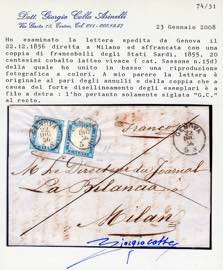 74/31
Dott. Giorgio Colla Asinelli
23 Gennaio 2008
Ho esaminato la lettera spedita da Genova il
22.12.1856 diretta a Milano ed affrancata con una
coppia di francobolli degli Stati Sardi, 1855, 20
centesimi cobalto latteo vivace (cat. Sassone n.15d)
della quale ho unito in basso una riproduzione
fotografica a colori. A mio parere la lettera è
originale al pari degli annulli e della coppia che a
causa del forte disallineamento degli esemplari è a
filo a destra: l'ho pertanto solamente siglata "G.C."
al recto.
Franca
GENOVA
22
DIC
La Bilancia
Milan